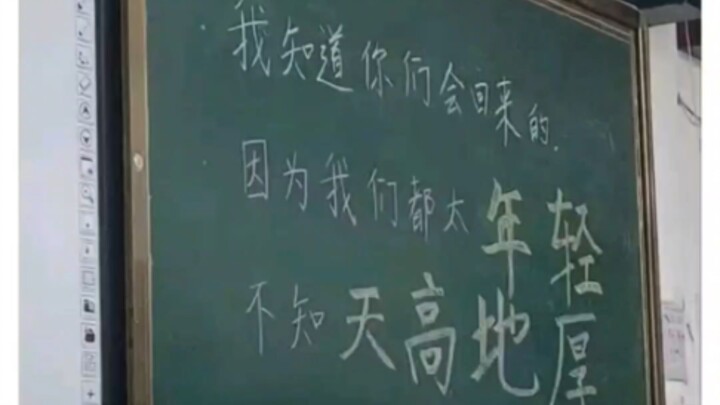 我知道你们会回来的.
因为我们都太年轻
不知天高地厚